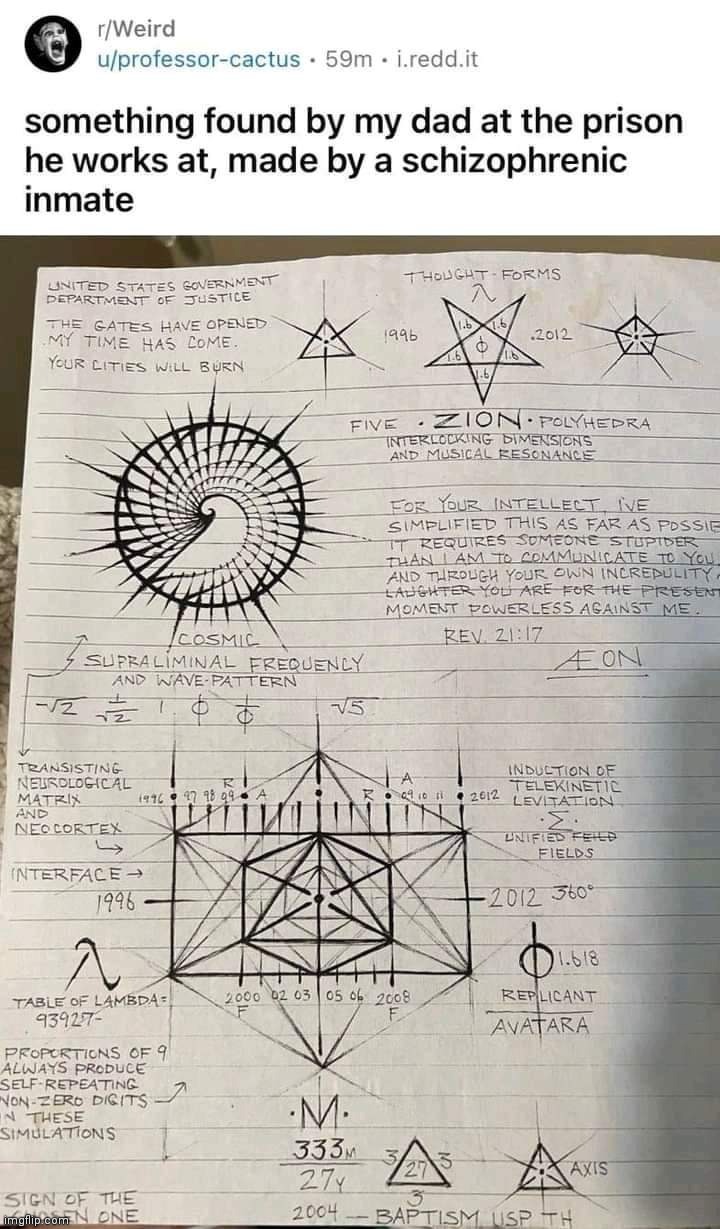 r/Weird
u/professor-cactus • 59m • i.redd.it
something found by my dad at the prison
he works at, made by a schizophrenic
inmate
UNITED STATES GOVERNMENT
DEPARTMENT OF JUSTICE
THE GATES HAVE OPENED
MY TIME HAS COME.
YOUR CITIES WILL BURN
THOUGHT-FORMS
λ
1996
1.6 1.6
ϕ
1.6 1.6
1.6
.2012
FIVE • ZION • POLYHEDRA
INTERLOCKING DIMENSIONS
AND MUSICAL RESONANCE
FOR YOUR INTELLECT, I'VE
SIMPLIFIED THIS AS FAR AS POSSIB
IT REQUIRES SOMEONE STUPIDER
THAN I AM TO COMMUNICATE TO YOU,
AND THROUGH YOUR OWN INCREDULITY,
LAUGHTER YOU ARE FOR THE PRESENT
MOMENT POWERLESS AGAINST ME.
REV. 21:17
ÆON
COSMIC
SUPRALIMINAL FREQUENCY
AND WAVE-PATTERN
-√2 1/√2 1 ϕ 1/ϕ √5
TRANSISTING
NEUROLOGICAL
MATRIX
AND
NEOCORTEX
INTERFACE →
1996
R A R A
1996 97 98 99 09 10 11 2012
INDUCTION OF
TELEKINETIC
LEVITATION
·Σ·
UNIFIED FEILD
FIELDS
2012 360°
λ
TABLE OF LAMBDA=
93927-
2000 02 03 05 06 2008
F F
ϕ 1.618
REPLICANT
AVATARA
PROPORTIONS OF 9
ALWAYS PRODUCE
SELF-REPEATING
NON-ZERO DIGITS
IN THESE
SIMULATIONS
·M·
333M
27Y
3 27 3
3
AXIS
2004 — BAPTISM USP TH
SIGN OF THE
ONE
imgflip.com